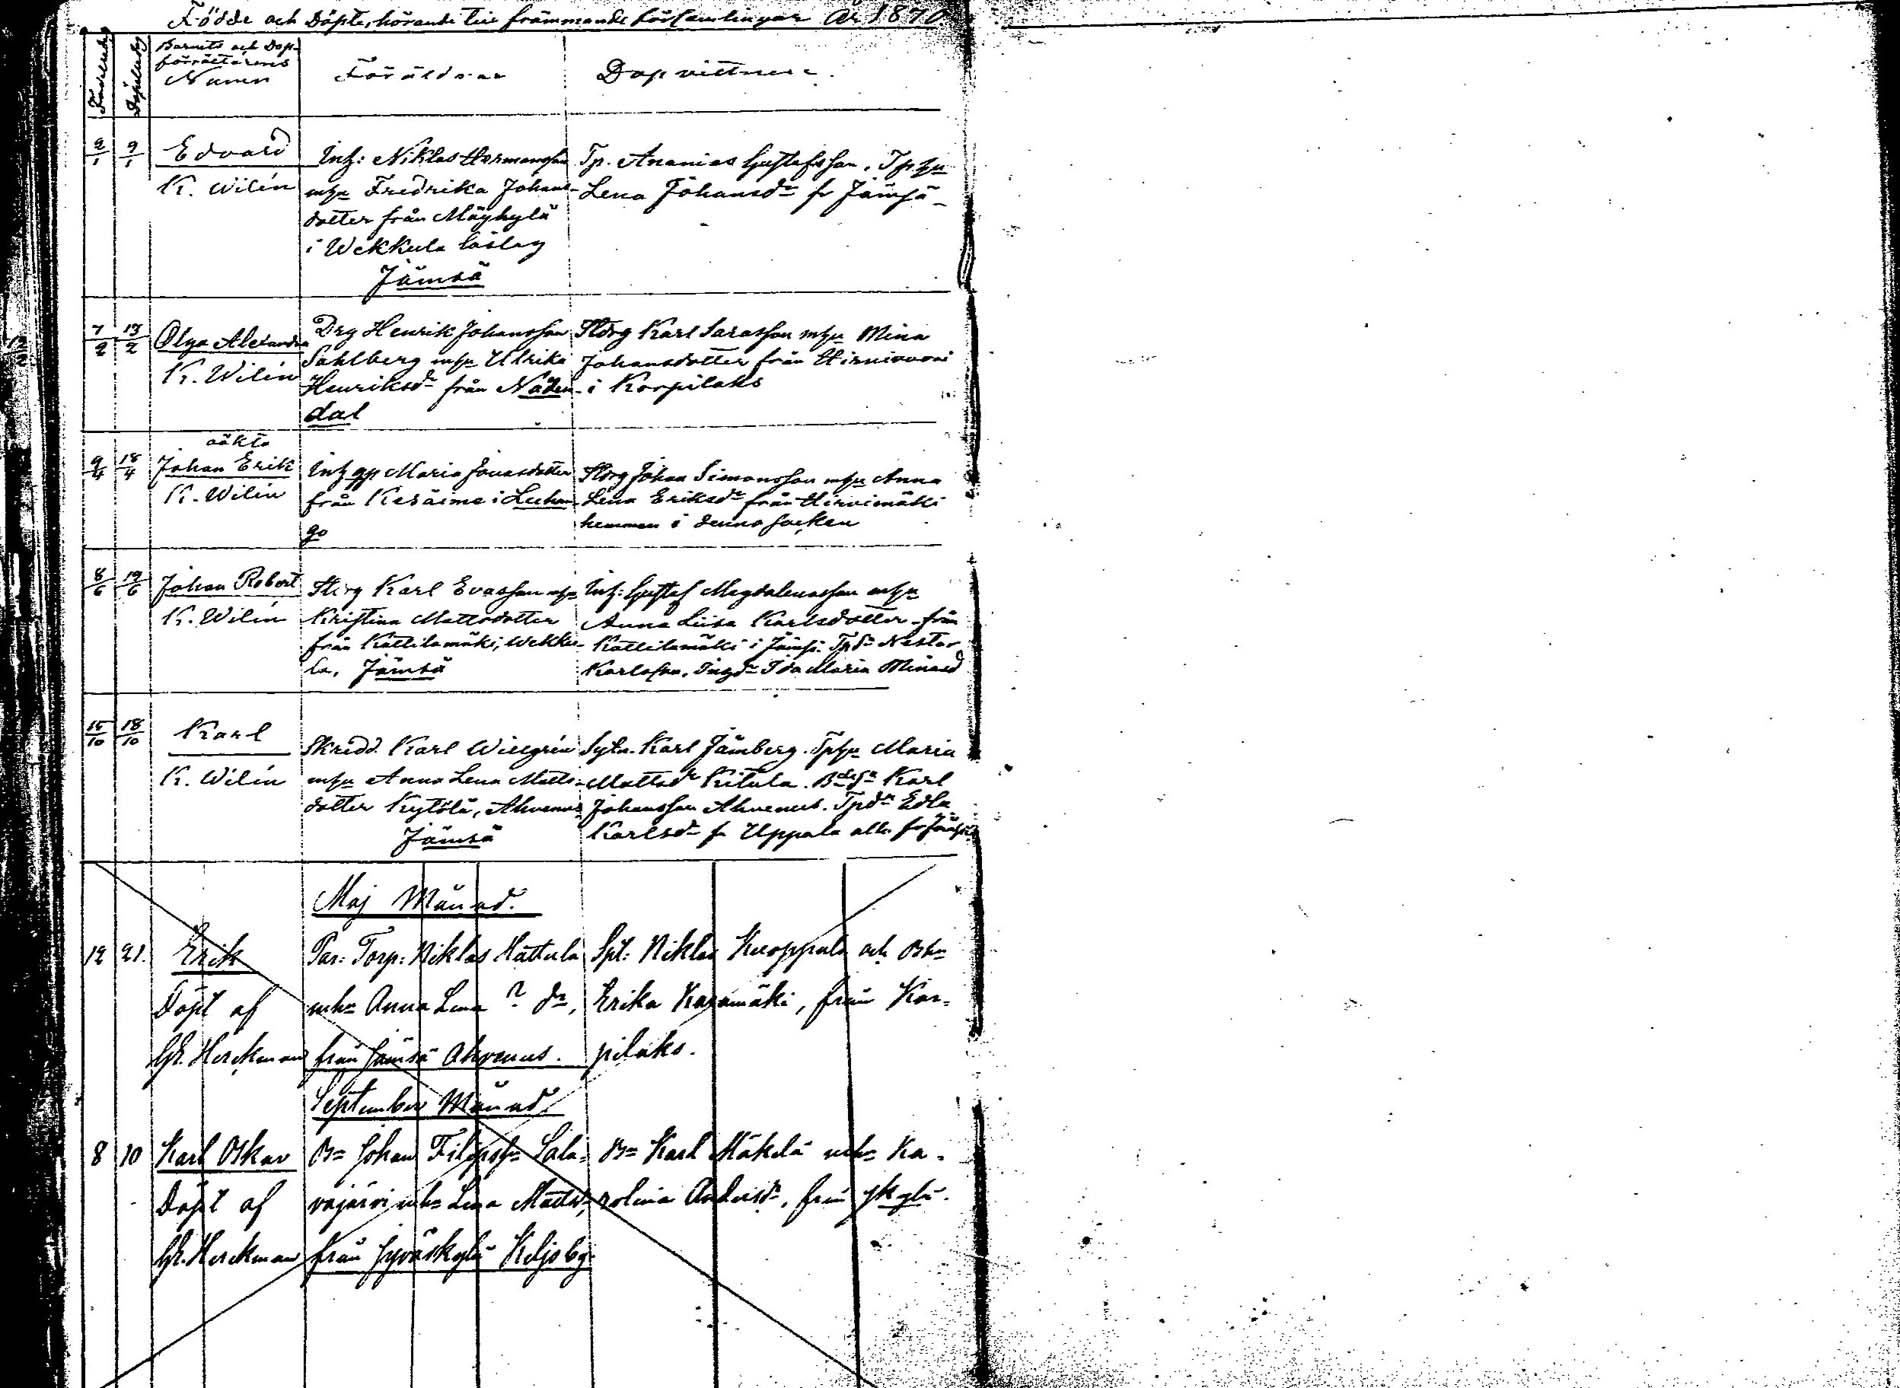 Födde och Döpte, hörande till främmande församlingar År 1870
Födelsedag
Döpelsedag
Barnets och Dop-
förrättarens
Namn
Föräldrar
Dopvittnen
9/1 9/1 Edvard
K. Wilén
Inh: Niklas Hermansson
mhu Fredrika Johans-
dotter från Mäykylä
i Wekkula låslag
Jämsä
Tp. Ananias Gustafsson, Tphu
Lena Johansdr fr Jämsä
7/2 13/2 Olga Alexandra
K. Wilén
Drg Henrik Johansson
Sahlberg mhu Ulrika
Henriksdr från Nåden-
dal
Stdrg Karl Sarasson mhu Mina
Johansdotter från
i Korpilaks
9/4 18/4 oäkta
Johan Erik
K. Wilén
Inh Maria Jonasdotter
från i Luhan-
go
Stdrg Johan Simonsson mhu Anna
Lena Eriksdr från Hirvimäki
hemman i denna socken
8/6 19/6 Johan Robert
K. Wilén
Stdrg Karl Evasson mhu
Kristina Mattsdotter
från Kattilamäki, Wekku-
la, Jämsä
Inh: Gustaf Magdalenasson mhu
Anna Lisa Karlsdotter från
Kattilamäki i Jämsä. Nestor
Karlsson, Ida Maria Minasd
15/10 18/10 Karl
K. Wilén
Skrädd. Karl Willgrén
mhu Anna Lena Matts-
dotter Kytölä, Ahvenus
Jämsä
Sytn. Karl Jämberg. Tphu Maria
Mattsdr Kitula. Karl
Johansson Ahvenus. Tpdr Edla
Karlsdr fr Uppala alla fr Jämsä
Maj Månad.
12 21. Erik
Döpt af
Gk. Herckman
Par: Torp: Niklas Hattula
mh= Anna Lena ? dr,
från Jämsä Ahvenus.
Spl: Niklas Kuoppala och
Erika Karamäki, från Kor-
pilaks.
September Månad.
8 10 Karl Oskar
Döpt af
Gk. Herckman
B= Johan Filipss= Sala-
vajärvi mh= Lena Mattsdr,
från Jyväskylä Keljoby.
B= Karl Mäkelä mh= Ka-
rolina Andersdr, från Jkylä.